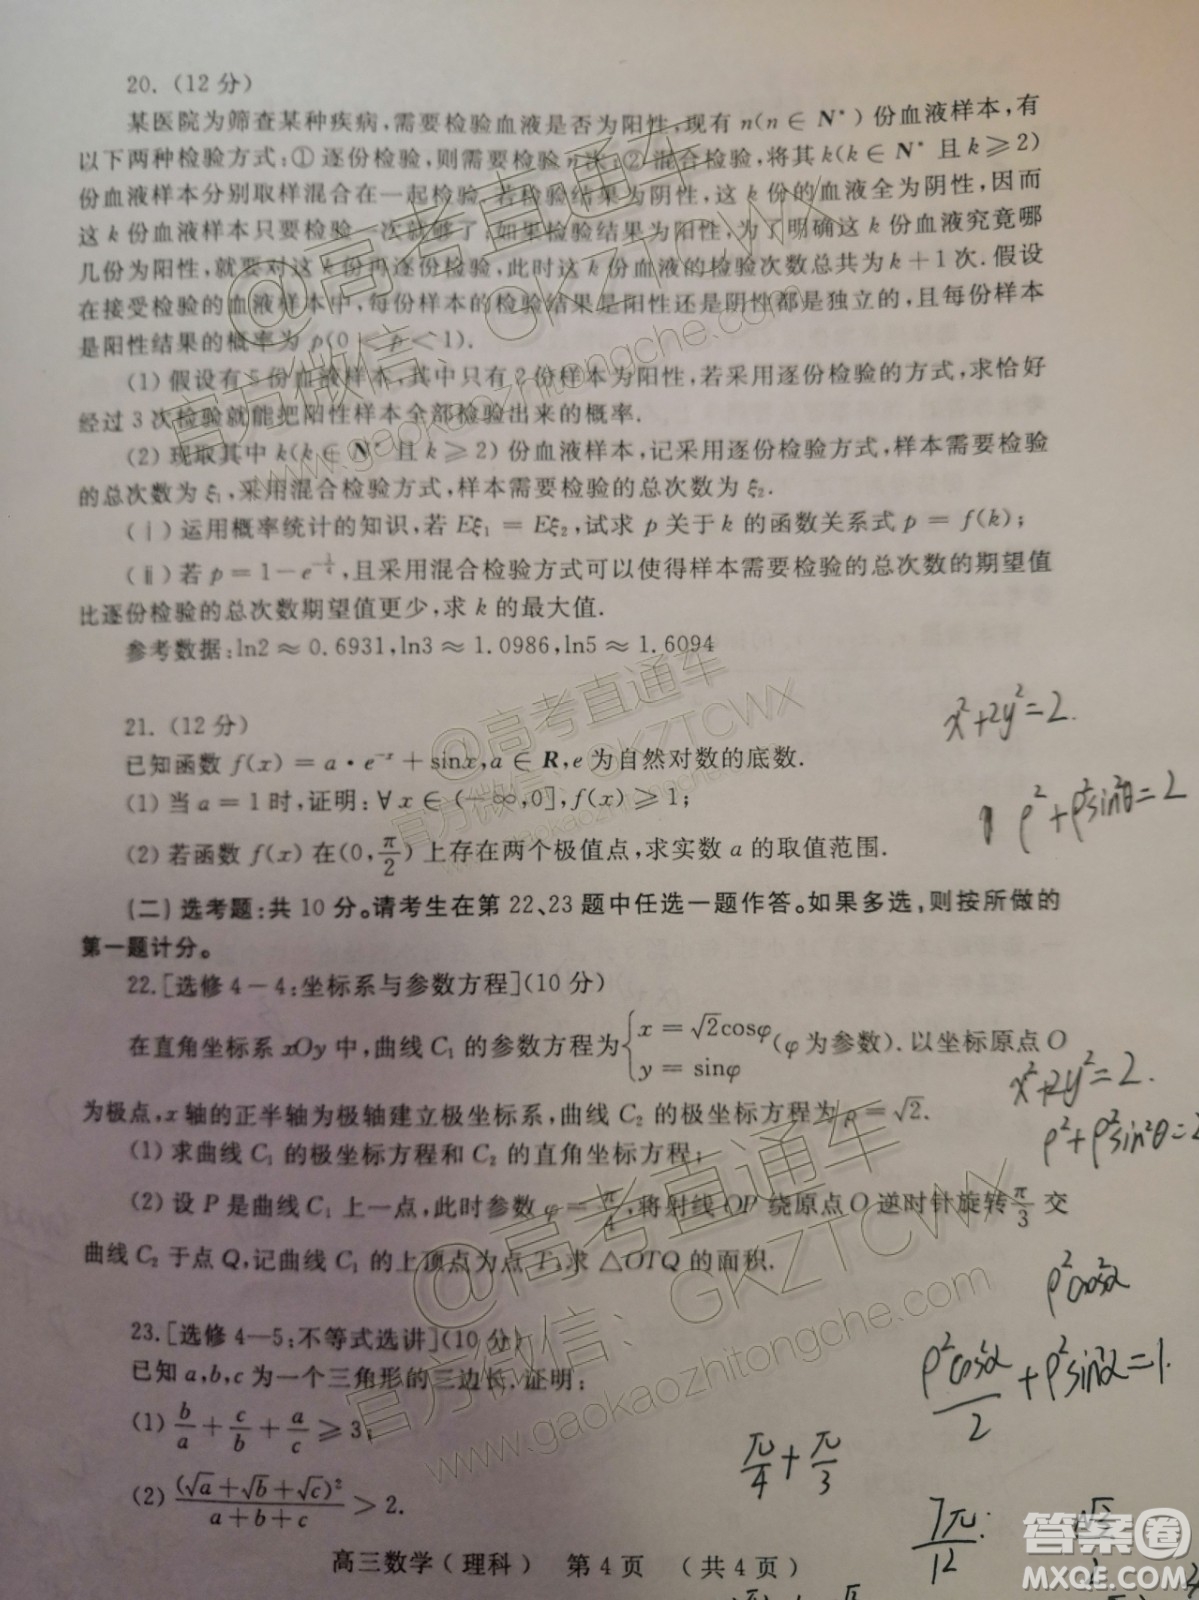 20. (12 分)
某医院为筛查某种疾病,需要检验血液是否为阳性,现有 n(n ∈ N*) 份血液样本,有
以下两种检验方式:①逐份检验,则需要检验 n 次;②混合检验,将其 k(k ∈ N* 且 k ⩾ 2)
份血液样本分别取样混合在一起检验.若检验结果为阴性,这 k 份的血液全为阴性,因而
这 k 份血液样本只要检验一次就够了,如果检验结果为阳性,为了明确这 k 份血液究竟哪
几份为阳性,就要对这 k 份再逐份检验,此时这 k 份血液的检验次数总共为 k+1 次.假设
在接受检验的血液样本中,每份样本的检验结果是阳性还是阴性都是独立的,且每份样本
是阳性结果的概率为 p(0 < p < 1).
(1) 假设有 5 份血液样本,其中只有 2 份样本为阳性,若采用逐份检验的方式,求恰好
经过 3 次检验就能把阳性样本全部检验出来的概率.
(2) 现取其中 k(k ∈ N* 且 k ⩾ 2) 份血液样本,记采用逐份检验方式,样本需要检验
的总次数为 ξ₁,采用混合检验方式,样本需要检验的总次数为 ξ₂.
(ⅰ) 运用概率统计的知识,若 Eξ₁ = Eξ₂,试求 p 关于 k 的函数关系式 p = f(k);
(ⅱ) 若 p = 1 − e^{−1/4},且采用混合检验方式可以使得样本需要检验的总次数的期望值
比逐份检验的总次数期望值更少,求 k 的最大值.
参考数据:ln2 ≈ 0.6931,ln3 ≈ 1.0986,ln5 ≈ 1.6094
x²+2y²=2.
21. (12 分)
已知函数 f(x) = a·e⁻ˣ + sinx,a ∈ R,e 为自然对数的底数.
(1) 当 a = 1 时,证明:∀x ∈ (−∞,0],f(x) ⩾ 1;
ρ²+ρ²sin²θ=2
(2) 若函数 f(x) 在 (0, π/2) 上存在两个极值点,求实数 a 的取值范围.
(二) 选考题:共 10 分。请考生在第 22、23 题中任选一题作答。如果多选,则按所做的
第一题计分。
22.[选修 4-4:坐标系与参数方程](10 分)
在直角坐标系 xOy 中,曲线 C₁ 的参数方程为 {x = √2cosφ, y = sinφ (φ 为参数). 以坐标原点 O
x²+2y²=2.
为极点,x 轴的正半轴为极轴建立极坐标系,曲线 C₂ 的极坐标方程为 ρ = √2.
ρ²+ρ²sin²θ=2
(1) 求曲线 C₁ 的极坐标方程和 C₂ 的直角坐标方程;
(2) 设 P 是曲线 C₁ 上一点,此时参数 φ = π/4,将射线 OP 绕原点 O 逆时针旋转 π/3 交
曲线 C₂ 于点 Q,记曲线 C₁ 的上顶点为点 T,求 △OTQ 的面积.
ρ²cos²α
23.[选修 4—5:不等式选讲](10 分)
ρ²cos²α/2+ρ²sin²α=1.
已知 a,b,c 为一个三角形的三边长.证明:
(1) b/a + c/b + a/c ⩾ 3;
π/4+π/3
(2) (√a+√b+√c)²/(a+b+c) > 2.
7π/12.
高三数学(理科) 第 4 页 (共 4 页)
@高考直通车
官方微信:GKZTCWX
www.gaokaozhitongche.com
@高考直通车
官方微信:GKZTCWX
www.gaokaozhitongche.com
@高考直通车
官方微信:GKZTCWX
www.gaokaozhitongche.com
答案圈
MXQE.COM